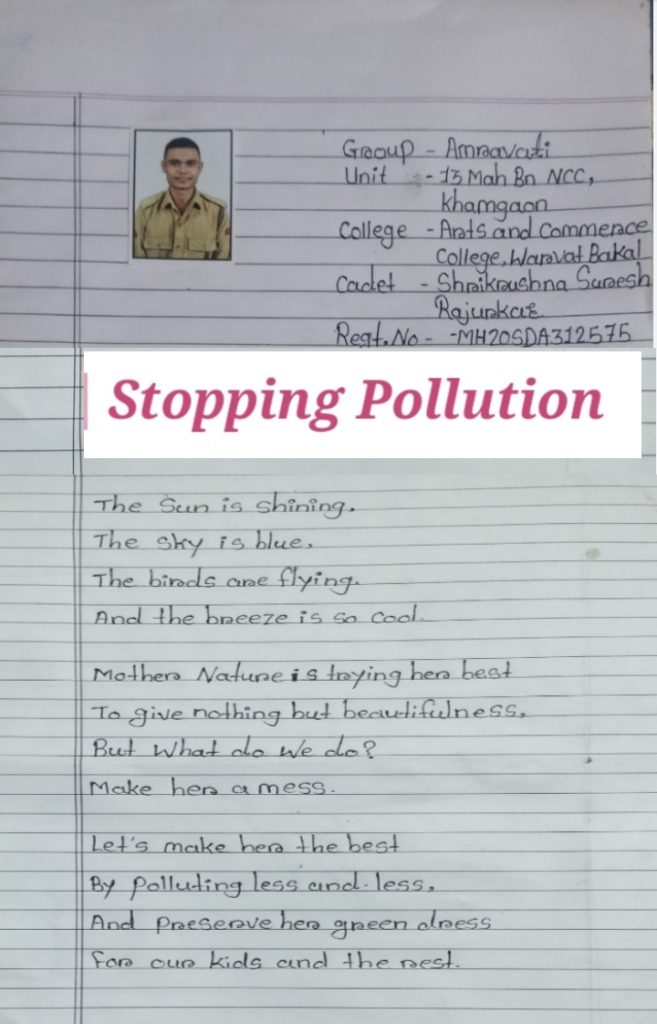 Group - Amravati
Unit - 13 Mah Bn NCC,
Khamgaon
College - Arts and Commerce
College, Warvat Bakal
Cadet - Shrikrushna Suresh
Rajurkar
Regt. No - -MH20SDA312575
Stopping Pollution
The Sun is shining.
The sky is blue.
The birds are flying.
And the breeze is so cool.
Mother Nature is trying her best
To give nothing but beautifulness,
But What do we do?
Make her a mess.
Let's make her the best
By Polluting less and less,
And Preserve her green dress
For our kids and the rest.